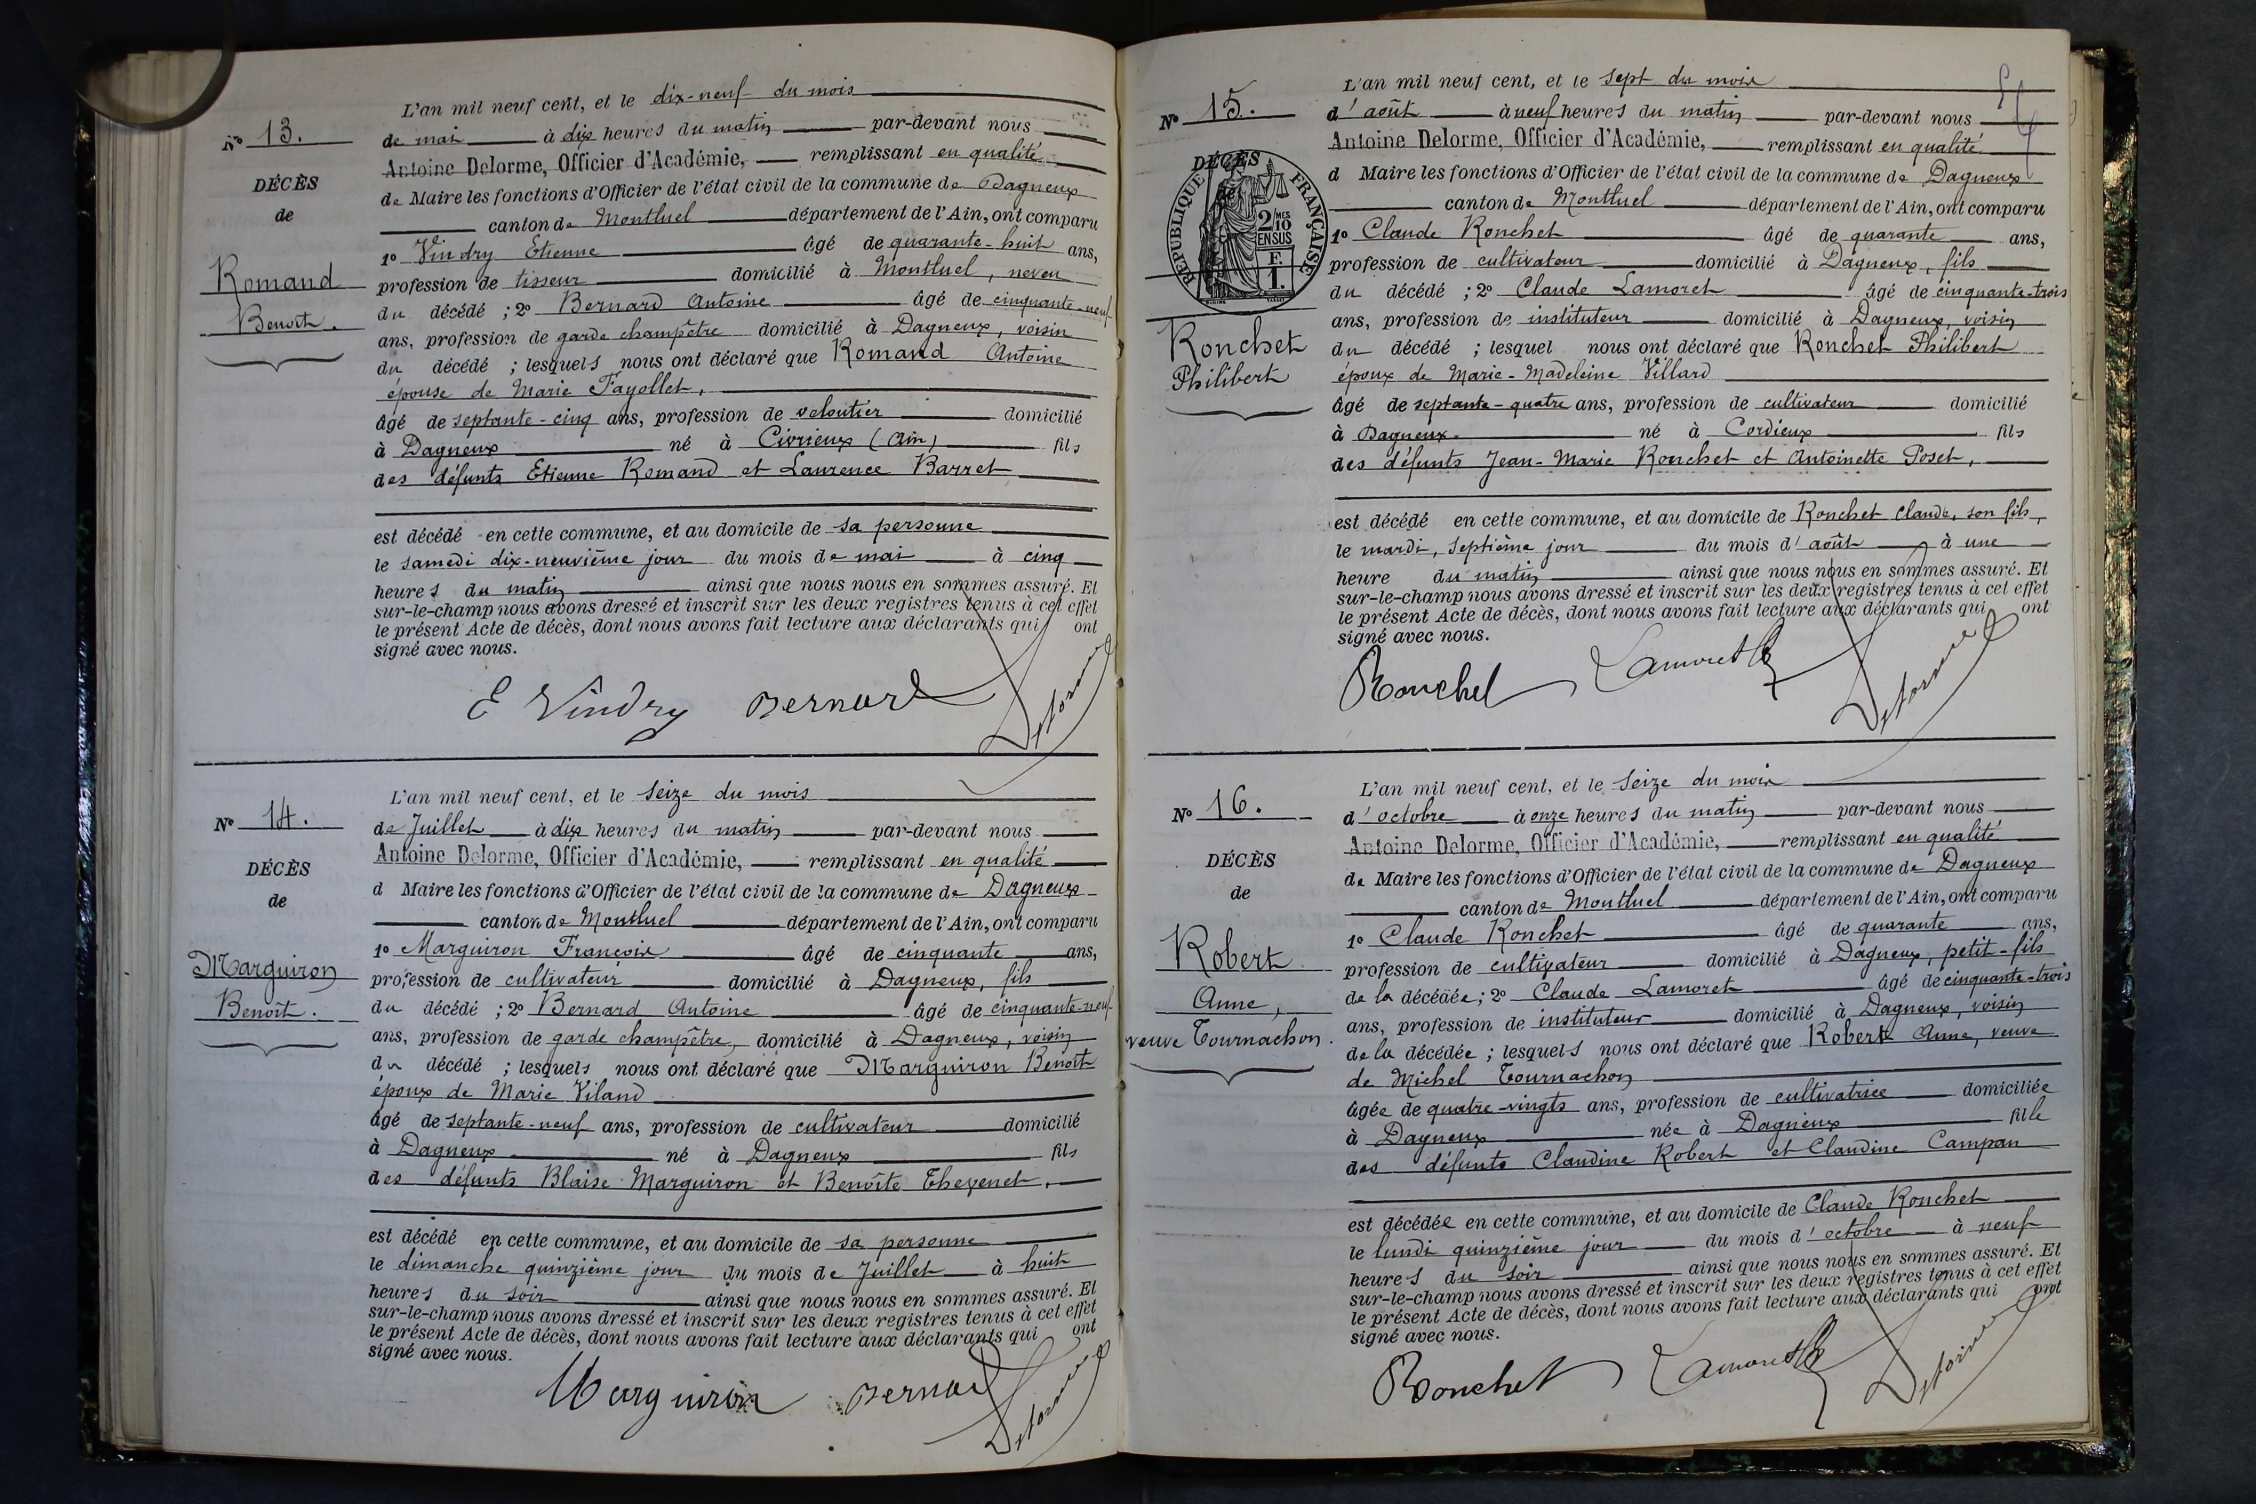 L'an mil neuf cent, et le dix-neuf du mois
N° 13.
de mai à dix heures du matin par-devant nous
Antoine Delorme, Officier d'Académie, remplissant en qualité
DÉCÈS
de Maire les fonctions d'Officier de l'état civil de la commune de Dagneux
de
canton de Montluel département de l'Ain, ont comparu
1° Vindry Etienne âgé de quarante-huit ans,
Romand
profession de tisseur domicilié à Montluel, neveu
Benoît.
du décédé ; 2° Bernard Antoine âgé de cinquante-neuf
ans, profession de garde champêtre domicilié à Dagneux, voisin
du décédé ; lesquels nous ont déclaré que Romand Antoine
épouse de Marie Fayollet,
âgé de septante-cinq ans, profession de veloutier domicilié
à Dagneux né à Civrieux (Ain) fils
des défunts Etienne Romand et Laurence Barret
est décédé en cette commune, et au domicile de sa personne
le samedi dix-neuvième jour du mois de mai à cinq
heures du matin ainsi que nous nous en sommes assuré. Et
sur-le-champ nous avons dressé et inscrit sur les deux registres tenus à cet effet
le présent Acte de décès, dont nous avons fait lecture aux déclarants qui ont
signé avec nous.
E Vindry Bernard Delorme
L'an mil neuf cent, et le seize du mois
N° 14.
de Juillet à dix heures du matin par-devant nous
Antoine Delorme, Officier d'Académie, remplissant en qualité
DÉCÈS
d Maire les fonctions d'Officier de l'état civil de la commune de Dagneux
de
canton de Montluel département de l'Ain, ont comparu
1° Marguiron François âgé de cinquante ans,
Marguiron
profession de cultivateur domicilié à Dagneux, fils
Benoît.
du décédé ; 2° Bernard Antoine âgé de cinquante-neuf
ans, profession de garde champêtre, domicilié à Dagneux, voisin
du décédé ; lesquels nous ont déclaré que Marguiron Benoît
époux de Marie Viland
âgé de septante-neuf ans, profession de cultivateur domicilié
à Dagneux né à Dagneux fils
des défunts Blaise Marguiron et Benoîte Thevenet,
est décédé en cette commune, et au domicile de sa personne
le dimanche quinzième jour du mois de Juillet à huit
heures du soir ainsi que nous nous en sommes assuré. Et
sur-le-champ nous avons dressé et inscrit sur les deux registres tenus à cet effet
le présent Acte de décès, dont nous avons fait lecture aux déclarants qui ont
signé avec nous.
Marguiron Bernard Delorme
L'an mil neuf cent, et le sept du mois
N° 15.
d'août à neuf heures du matin par-devant nous
Antoine Delorme, Officier d'Académie, remplissant en qualité
DÉCÈS
RÉPUBLIQUE FRANÇAISE
2/10MES
EN SUS
F.
1.
d Maire les fonctions d'Officier de l'état civil de la commune de Dagneux
canton de Montluel département de l'Ain, ont comparu
1° Claude Ronchet âgé de quarante ans,
profession de cultivateur domicilié à Dagneux, fils
du décédé ; 2° Claude Lamoret âgé de cinquante-trois
ans, profession de instituteur domicilié à Dagneux, voisin
Ronchet
Philibert
du décédé ; lesquel nous ont déclaré que Ronchet Philibert
époux de Marie-Madeleine Villard
âgé de septante-quatre ans, profession de cultivateur domicilié
à Dagneux. né à Cordieux fils
des défunts Jean-Marie Ronchet et Antoinette Poset,
est décédé en cette commune, et au domicile de Ronchet Claude, son fils,
le mardi, septième jour du mois d'août à une
heure du matin ainsi que nous nous en sommes assuré. Et
sur-le-champ nous avons dressé et inscrit sur les deux registres tenus à cet effet
le présent Acte de décès, dont nous avons fait lecture aux déclarants qui ont
signé avec nous.
Ronchet Lamoret Delorme
L'an mil neuf cent, et le seize du mois
N° 16.
d'octobre à onze heures du matin par-devant nous
Antoine Delorme, Officier d'Académie, remplissant en qualité
DÉCÈS
de Maire les fonctions d'Officier de l'état civil de la commune de Dagneux
de
canton de Montluel département de l'Ain, ont comparu
1° Claude Ronchet âgé de quarante ans,
Robert
profession de cultivateur domicilié à Dagneux, petit-fils
Anne,
de la décédée ; 2° Claude Lamoret âgé de cinquante-trois
ans, profession de instituteur domicilié à Dagneux, voisin
veuve Tournachon.
de la décédée ; lesquels nous ont déclaré que Robert Anne, veuve
de Michel Tournachon
âgée de quatre-vingts ans, profession de cultivatrice domiciliée
à Dagneux née à Dagneux fille
des défunts Claudine Robert et Claudine Campan
est décédée en cette commune, et au domicile de Claude Ronchet
le lundi quinzième jour du mois d'octobre à neuf
heures du soir ainsi que nous nous en sommes assuré. Et
sur-le-champ nous avons dressé et inscrit sur les deux registres tenus à cet effet
le présent Acte de décès, dont nous avons fait lecture aux déclarants qui ont
signé avec nous.
Ronchet Lamoret Delorme